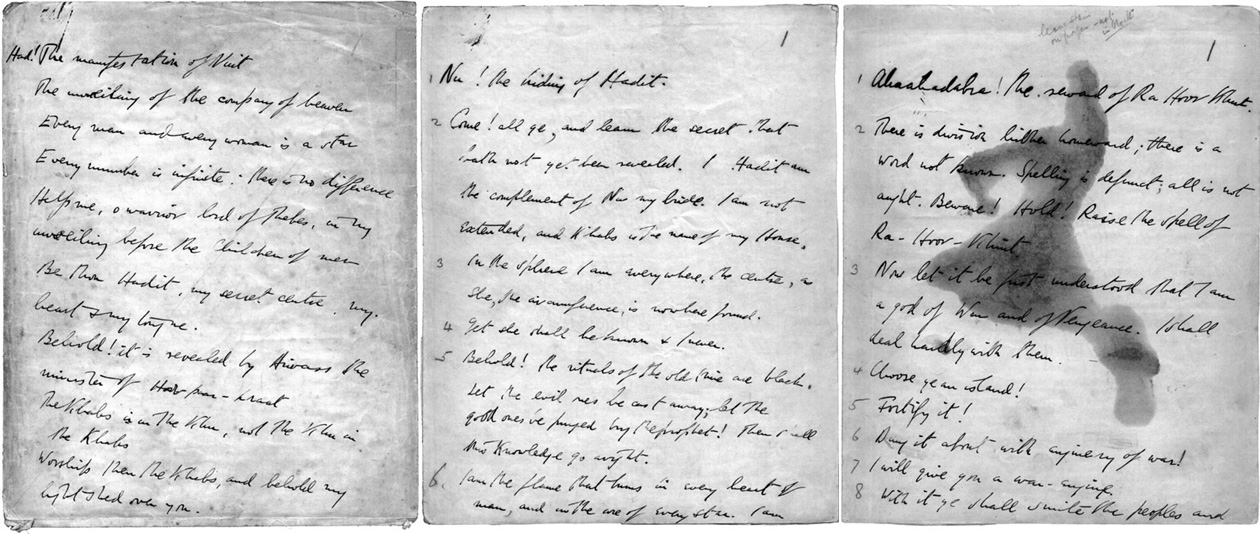 Had! The manifestation of Nuit
The unveiling of the company of heaven
Every man and every woman is a star
Every number is infinite: there is no difference
Help me, o warrior lord of Thebes, in my
unveiling before the Children of men
Be thou Hadit, my secret centre, my
heart & my tongue.
Behold! it is revealed by Aiwass the
minister of Hoor-paar-kraat
The Khabs is in the Khu, not the Khu in
the Khabs
Worship then the Khabs, and behold my
light shed over you.
1
1 Nu! the hiding of Hadit.
2 Come! all ye, and learn the secret that
hath not yet been revealed. I Hadit am
the complement of Nu my bride. I am not
extended, and Khabs is the name of my House.
3 In the sphere I am everywhere, the centre, as
she, the circumference, is nowhere found.
4 Yet she shall be known & I never.
5 Behold! the rituals of the old time are black.
Let the evil ones be cast away; let the
good ones be purged by the prophet! Then shall
this Knowledge go aright.
6. I am the flame that burns in every heart of
man, and in the core of every star. I am
1
1 Abrahadabra! the reward of Ra Hoor Khut.
2 There is division hither homeward; there is a
word not known. Spelling is defunct; all is not
aught. Beware! Hold! Raise the spell of
Ra-Hoor-Khuit
3 Now let it be first understood that I am
a god of War and of Vengeance. I shall
deal hardly with them.
4 Choose ye an island!
5 Fortify it!
6 Dung it about with enginery of war!
7 I will give you a war-engine.
8 With it ye shall smite the peoples and